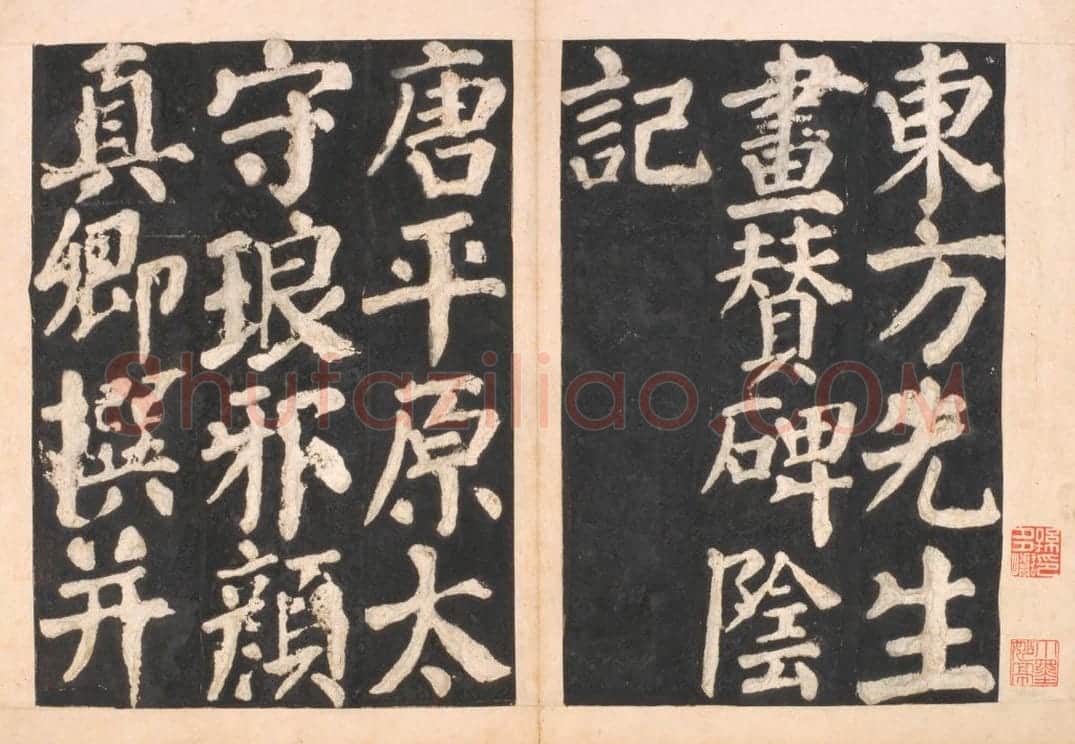 東方先生
畫贊碑陰
記
唐平原太
守琅邪顏
真卿撰并
Shufaziliao.COM